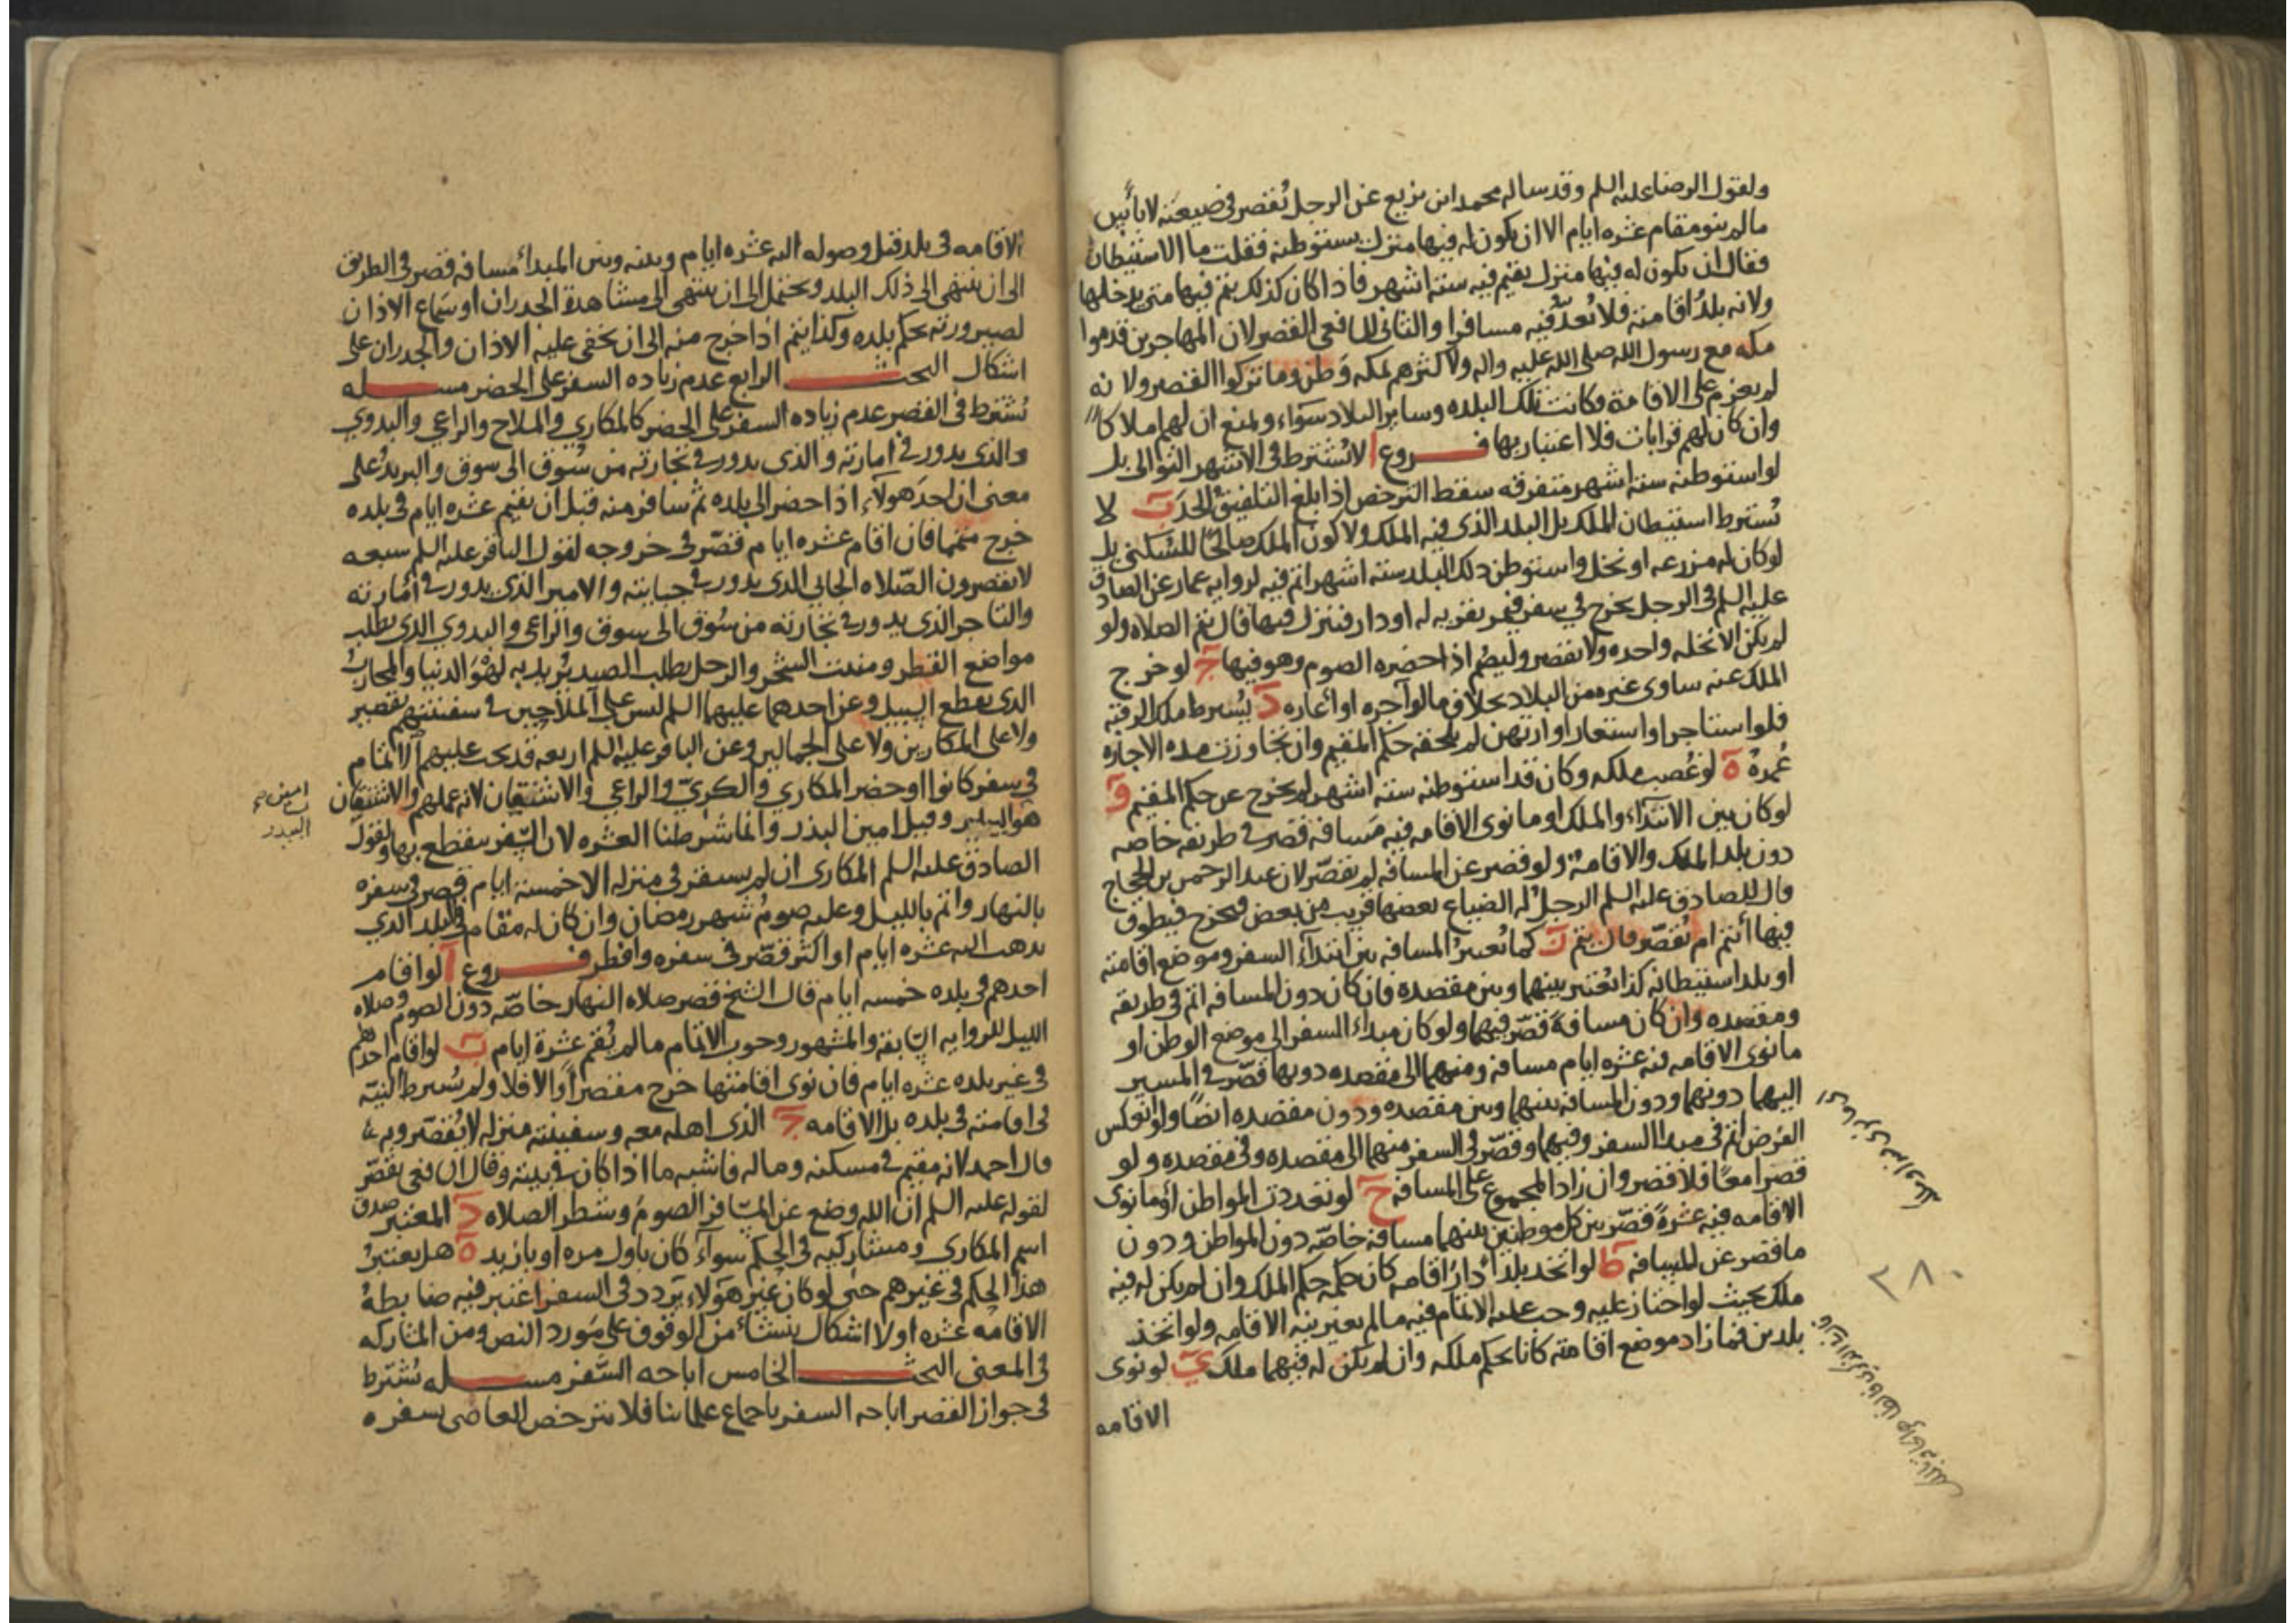 ولقول الرضا عليه السلم وقد ساله محمد ابن بزيع عن الرجل يُقصر في ضيعته لا بأس
ما لم ينو مقام عشره ايام الا ان يكون له فيها منزل يستوطنه فقلت ما الاستيطان
فقال ان يكون له فيها منزل يقيم فيه ستة اشهر فاذا كان كذلك يتم فيها متى يدخلها
ولانه بلدُ اقامته فلا يُعدُّ فيه مسافرا والثانى للشافعى القصر لان المهاجرين قدموا
مكه مع رسول الله صلى الله عليه واله ولاكثرهم بمكه وَطن وما تركوا القصر ولانه
لم يعزم على الاقامة فكانت تلك البلده وساير البلاد سَواء ويمنع ان لهم املاكا
وان كان لهم قرابات فلا اعتبار بها فــــروع ا لا يُشترط فى الاشهر التوالى بل
لو استوطنه ستة اشهر متفرقه سقط الترخص اذا بلغ التلفيق الحدَ ب لا
يُشترط استيطان الملك بل البلد الذى فيه الملك ولا كون الملك صالحًا للسُكنى بل
لو كان له مزرعه او نخل واستوطن ذلك البلد ستة اشهر اتم فيه لروايه عمار عن الصادق
عليه السلم فى الرجل يخرج في سفر فيمر بقريه له او دار فينزل فيها قال يتم الصلاه ولو
لم يكن الا نخله واحده ولا يقصر وليصُم اذا حضره الصوم وهو فيها ج لو خرج
الملك عنه ساوى غيره من البلاد بخلاف ما لو آجره او أعاره د يُشترط ملك الرقبه
فلو استاجر او استعار او ارتهن لم يلحقه حكم المقيم وان تجاوزت مده الاجاره
عُمرهُ ه لو غُصب ملكه وكان قد استوطنه ستة اشهر لم يخرج عن حكم المقيم و
لو كان بين الابتدآء والملك او ما نوى الاقامه فيه مَسافه قصر في طريقه خاصه
دون بلد الملك والاقامة ولو قصر عن المسافه لم يقصّر لان عبد الرحمن بن الحجاج
قال للصادق عليه السلم الرجل له الضياع بعضها قريب من بعض فيخرج فيطوف
فيها أيتم ام يُقصّر قال يتم ز كما تُعتبرُ المسافه بين ابتدآء السفر وموضع اقامته
او بلد استيطانه كذا تُعتبر بينهما وبين مقصده فان كان دون المسافه اتم فى طريقه
ومقصده وان كان مسافةً قصّر فيهما ولو كان مبداء السفر الى موضع الوطن او
ما نوى الاقامه فيه عشره ايام مسافه ومنهما الى مقصده دونها قصّر في المسير
اليهما دونهما ودون المسافه بينهما وبين مقصده ودون مقصده ايضًا ولو انعكس
الفرض اتم فى مبدا السفر وفيهما وقصّر فى السفر منهما الى مقصده وفى مقصده ولو
قصرا معًا فلا قصر وان زاد المجموع على المسافه ح لو تعددت المواطن او ما نوى
الاقامه فيه عشرةً قصّر بين كل موطنين بينهما مسافه خاصّه دون المواطن ودون
ما قصر عن المسافه ط لو اتخذ بلداً دارَ اقامه كان حكمه حكم الملك وان لم يكن له فيه
ملك بحيث لو اجتاز عليه وجب عليه الاتمام فيه ما لم يغير نيه الاقامه ولو اتخذ
بلدين فما زاد موضع اقامته كانا بحكم ملكه وان لم يكن له فيهما ملك ي لو نوى
الاقامه
٢٨٠
الاقامه فى بلد قبل وصوله اليه عشره ايام وبينه وبين المبدأ مسافه قصر فى الطريق
الى ان ينتهى الى ذلك البلد ويحتمل الى ان ينتهى الى مشاهدة الجدران او سَماع الاذان
لصيرورته بحكم بلده وكذا يتم اذا خرج منه الى ان يخفى عليه الاذان والجدران على
اشكال البحــــث الرابع عدم زياده السفر على الحضر مســــله
يُشترط فى القصر عدم زياده السفر على الحضر كالمكاري والملاح والراعي والبدوي
والذى يدور في امارته والذى يدور في تجارته من سُوق الى سوق والبريدُ على
معنى ان احدَ هولآء اذا حضر الى بلده ثم سافر منه قبل ان يقيم عشره ايام فى بلده
خرج متمما فان اقام عشره ايام قصّر فى خروجه لقول الباقر عليه السلم سبعه
لا يقصرون الصّلاه الجابي الذى يدور في جبايته والامير الذي يدور في أمارته
والتاجر الذى يدور في تجارته من سُوق الى سوق والراعى والبدوي الذى يطلب
مواضع القطر ومنبت الشجر والرحل يطلب الصيد يُريد به لهْوَ الدنيا والمحاربُ
الذى يقطع السبيل وعن احدهما عليهما السلم ليس على الملاحين في سفينتهم تقصير
ولا على المكارين ولا على الجمالين وعن الباقر عليه السلم اربعه قد يجب عليهم الاتمام
فى سفر كانوا او حضر المكاري والكريّ والراعي والاشتقان لانه عملهم والاشتقان
هو البيدر وقيل امين البيدر وانما شرطنا العشره لان السفر ينقطع بها ولقول
الصادق عليه السلم المكارى ان لم يستقر فى منزله الا خمسة ايام قصر فى سفره
بالنهار واتم بالليل وعليه صومُ شهر رمضان وان كان له مقام فى البلد الذي
يذهب اليه عشره ايام او اكثر قصّر فى سفره وافطر فــــروع ا لو اقام
احدهم فى بلده خمسه ايام قال الشيخ قصر صلاه النهار خاصّه دون الصوم وصلاه
الليل للروايه السابقه والمشهور وجوب الاتمام ما لم يُقم عشرة ايام ب لو اقام احدهم
فى غير بلده عشره ايام فان نوى اقامتها خرج مقصراً والا فلا ولم يشرط النيّة
فى اقامته فى بلده بل الاقامه ج الذى اهله معه وسفينته منزله لا يُقصّر وبه
قال احمد لانه مقيم في مسكنه وماله فاشبه ما اذا كان في بيته وقال الشافعى يقصّر
لقوله عليه السلم ان الله وضع عن المسافر الصومَ وشطر الصلاه د المعتبر صدق
اسم المكاري ومشاركيه فى الحكم سوآءً كان باول مره او بازيد ه هل يعتبرُ
هذا الحكم فى غيرهم حتى لو كان غير هَوَلاء يَردد فى السفر اعتبر فيه ضابطهُ
الاقامه عشره اولا اشكال ينشأ من الوقوف على مَورد النص ومن المشاركه
فى المعنى البحــــث الخامس اباحه السَّفر مســــله يُشترط
فى جواز القصر اباحه السفر باجماع علمائنا فلا يترخص العاصى بسفره
امين
البيدر